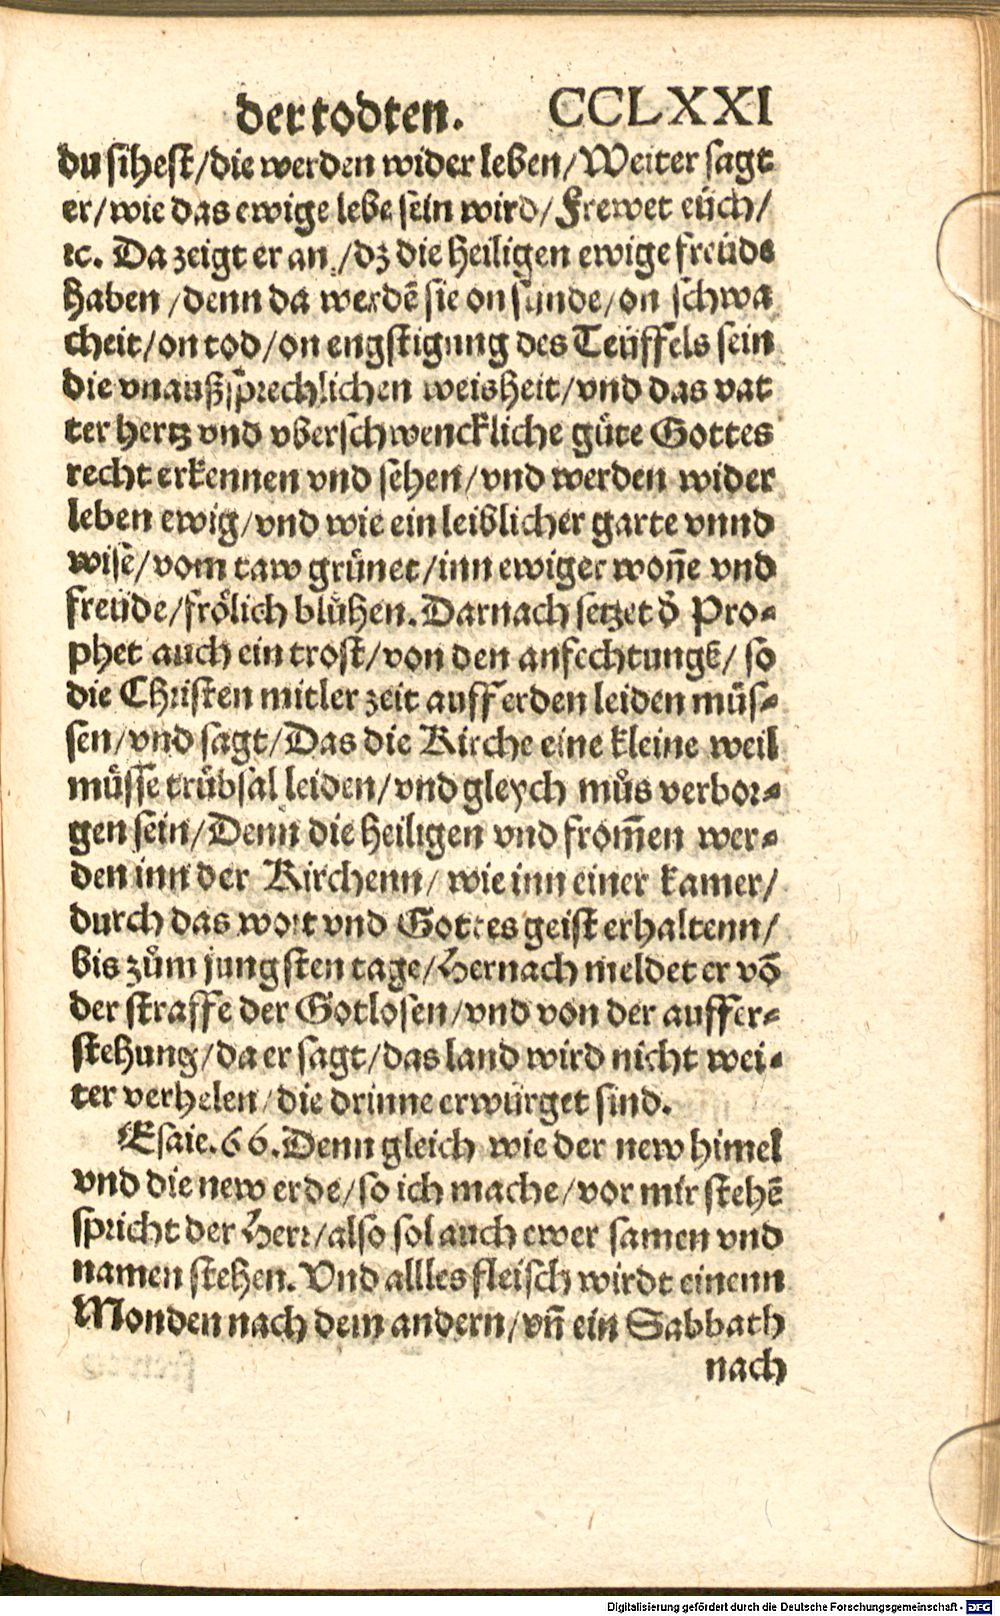 der todten. CCLXXI
du sihest/die werden wider leben/Weiter sagt
er/wie das ewige lebē sein wird/Frewet eüch/
ꝛc. Da zeigt er an/dz die heiligen ewige freüde
haben/denn da werdē sie on sünde/on schwa
cheit/on tod/on engstigung des Teüffels sein
die vnaußsprechlichen weisheit/vnd das vat
ter hertz vnd vberschwenckliche güte Gottes
recht erkennen vnd sehen/vnd werden wider
leben ewig/vnd wie ein leiblicher garte vnnd
wise/vom taw grünet/inn ewiger woñe vnd
freüde/frölich blühen. Darnach setzet ď Pro-
phet auch ein trost/von den anfechtungē/ so
die Christen mitler zeit auff erden leiden müs-
sen/vnd sagt/Das die Kirche eine kleine weil
müsse trübsal leiden/vnd gleych můs verbor-
gen sein/Denn die heiligen vnd from̃en wer-
den inn der Kirchenn/ wie inn einer kamer/
durch das wort vnd Gottes geist erhaltenn/
bis zům jungsten tage/Hernach meldet er vō
der straffe der Gotlosen/vnd von der auffer-
stehung/da er sagt/das land wird nicht wei-
ter verhelen/die drinne erwürget sind.
Esaie. 66. Denn gleich wie der new himel
vnd die new erde/so ich mache/vor mir stehē
spricht der Herr/also sol auch ewer samen vnd
namen stehen. Vnd allles fleisch wirdt einenn
Monden nach dem andern/vñ ein Sabbath
nach
Digitalisierung gefördert durch die Deutsche Forschungsgemeinschaft - DFG